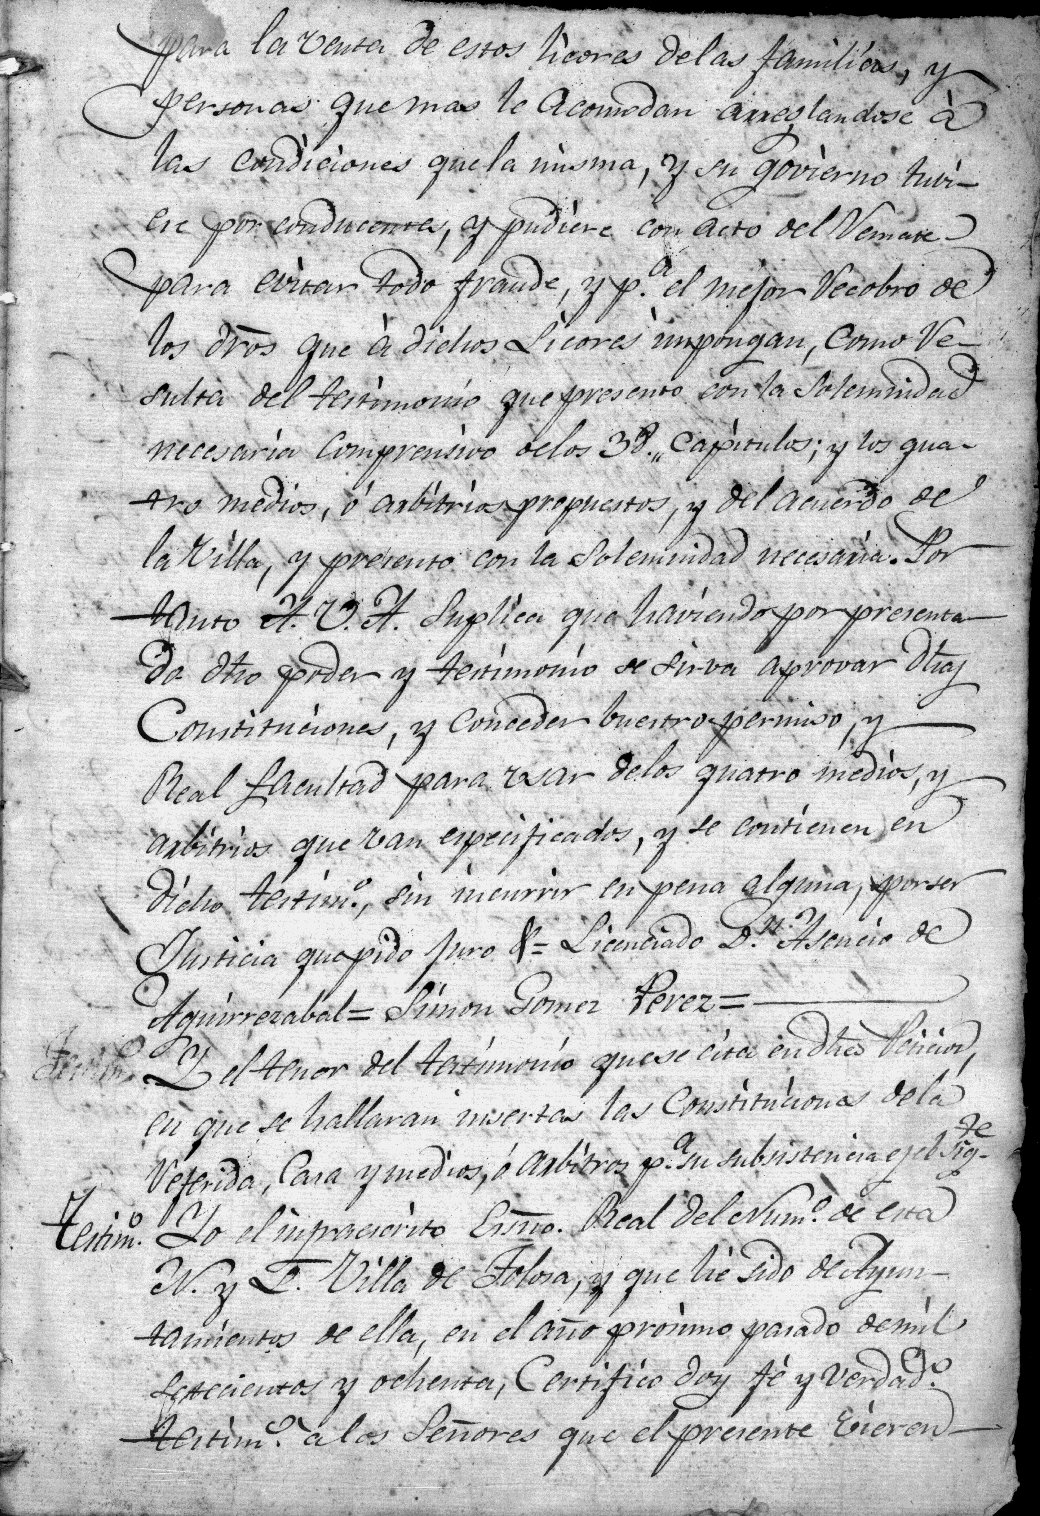 para la venta de estos licores delas familias, y
personas que mas le acomodan arreglandose à
las condiciones que la misma, y su Govierno tubi-
ere por conducentes, y pudiere con acto del Remate
para evitar todo fraude, y p.ª el mejor Recobro de
los dros que à dichos Licores impongan, como Re-
sulta del testimonio que presento con la solemnidad
necesaria comprensivo delos 38. capitulos; y los qua-
tro medios, ó arbitrios propuestos, y del acuerdo de
la Villa, y presento con la solemnidad necesaria. Por
tanto A. V. A. Suplica que haviendo por presenta-
do dho poder y testimonio se sirva aprovar dhas
Constituciones, y conceder buestro permiso, y
Real facultad para usar delos quatro medios, y
arbitrios que van especificados, y se contienen en
dicho testim.º, sin incurrir en pena alguna, por ser
Justicia que pido Juro &= Licenciado D.n Asencio de
Aguirrezabal = Simon Gomez Perez =
Y el tenor del testimonio que se cita en dha Peticion,
en que se hallaran insertas las Constituciones dela
Referida, Casa y medios, ó arbitros p.ª su subsistencia es el Sig.te
Testim.º Yo el infraescrito Essno. Real del Num.º de esta
N. y L. Villa de Tolosa, y que he sido de Ayun-
tamientos de ella, en el año próximo pasado de mil
setecientos y ochenta, Certifico doy fé y verdad.º
testim.º à los Señores que el presente vieren